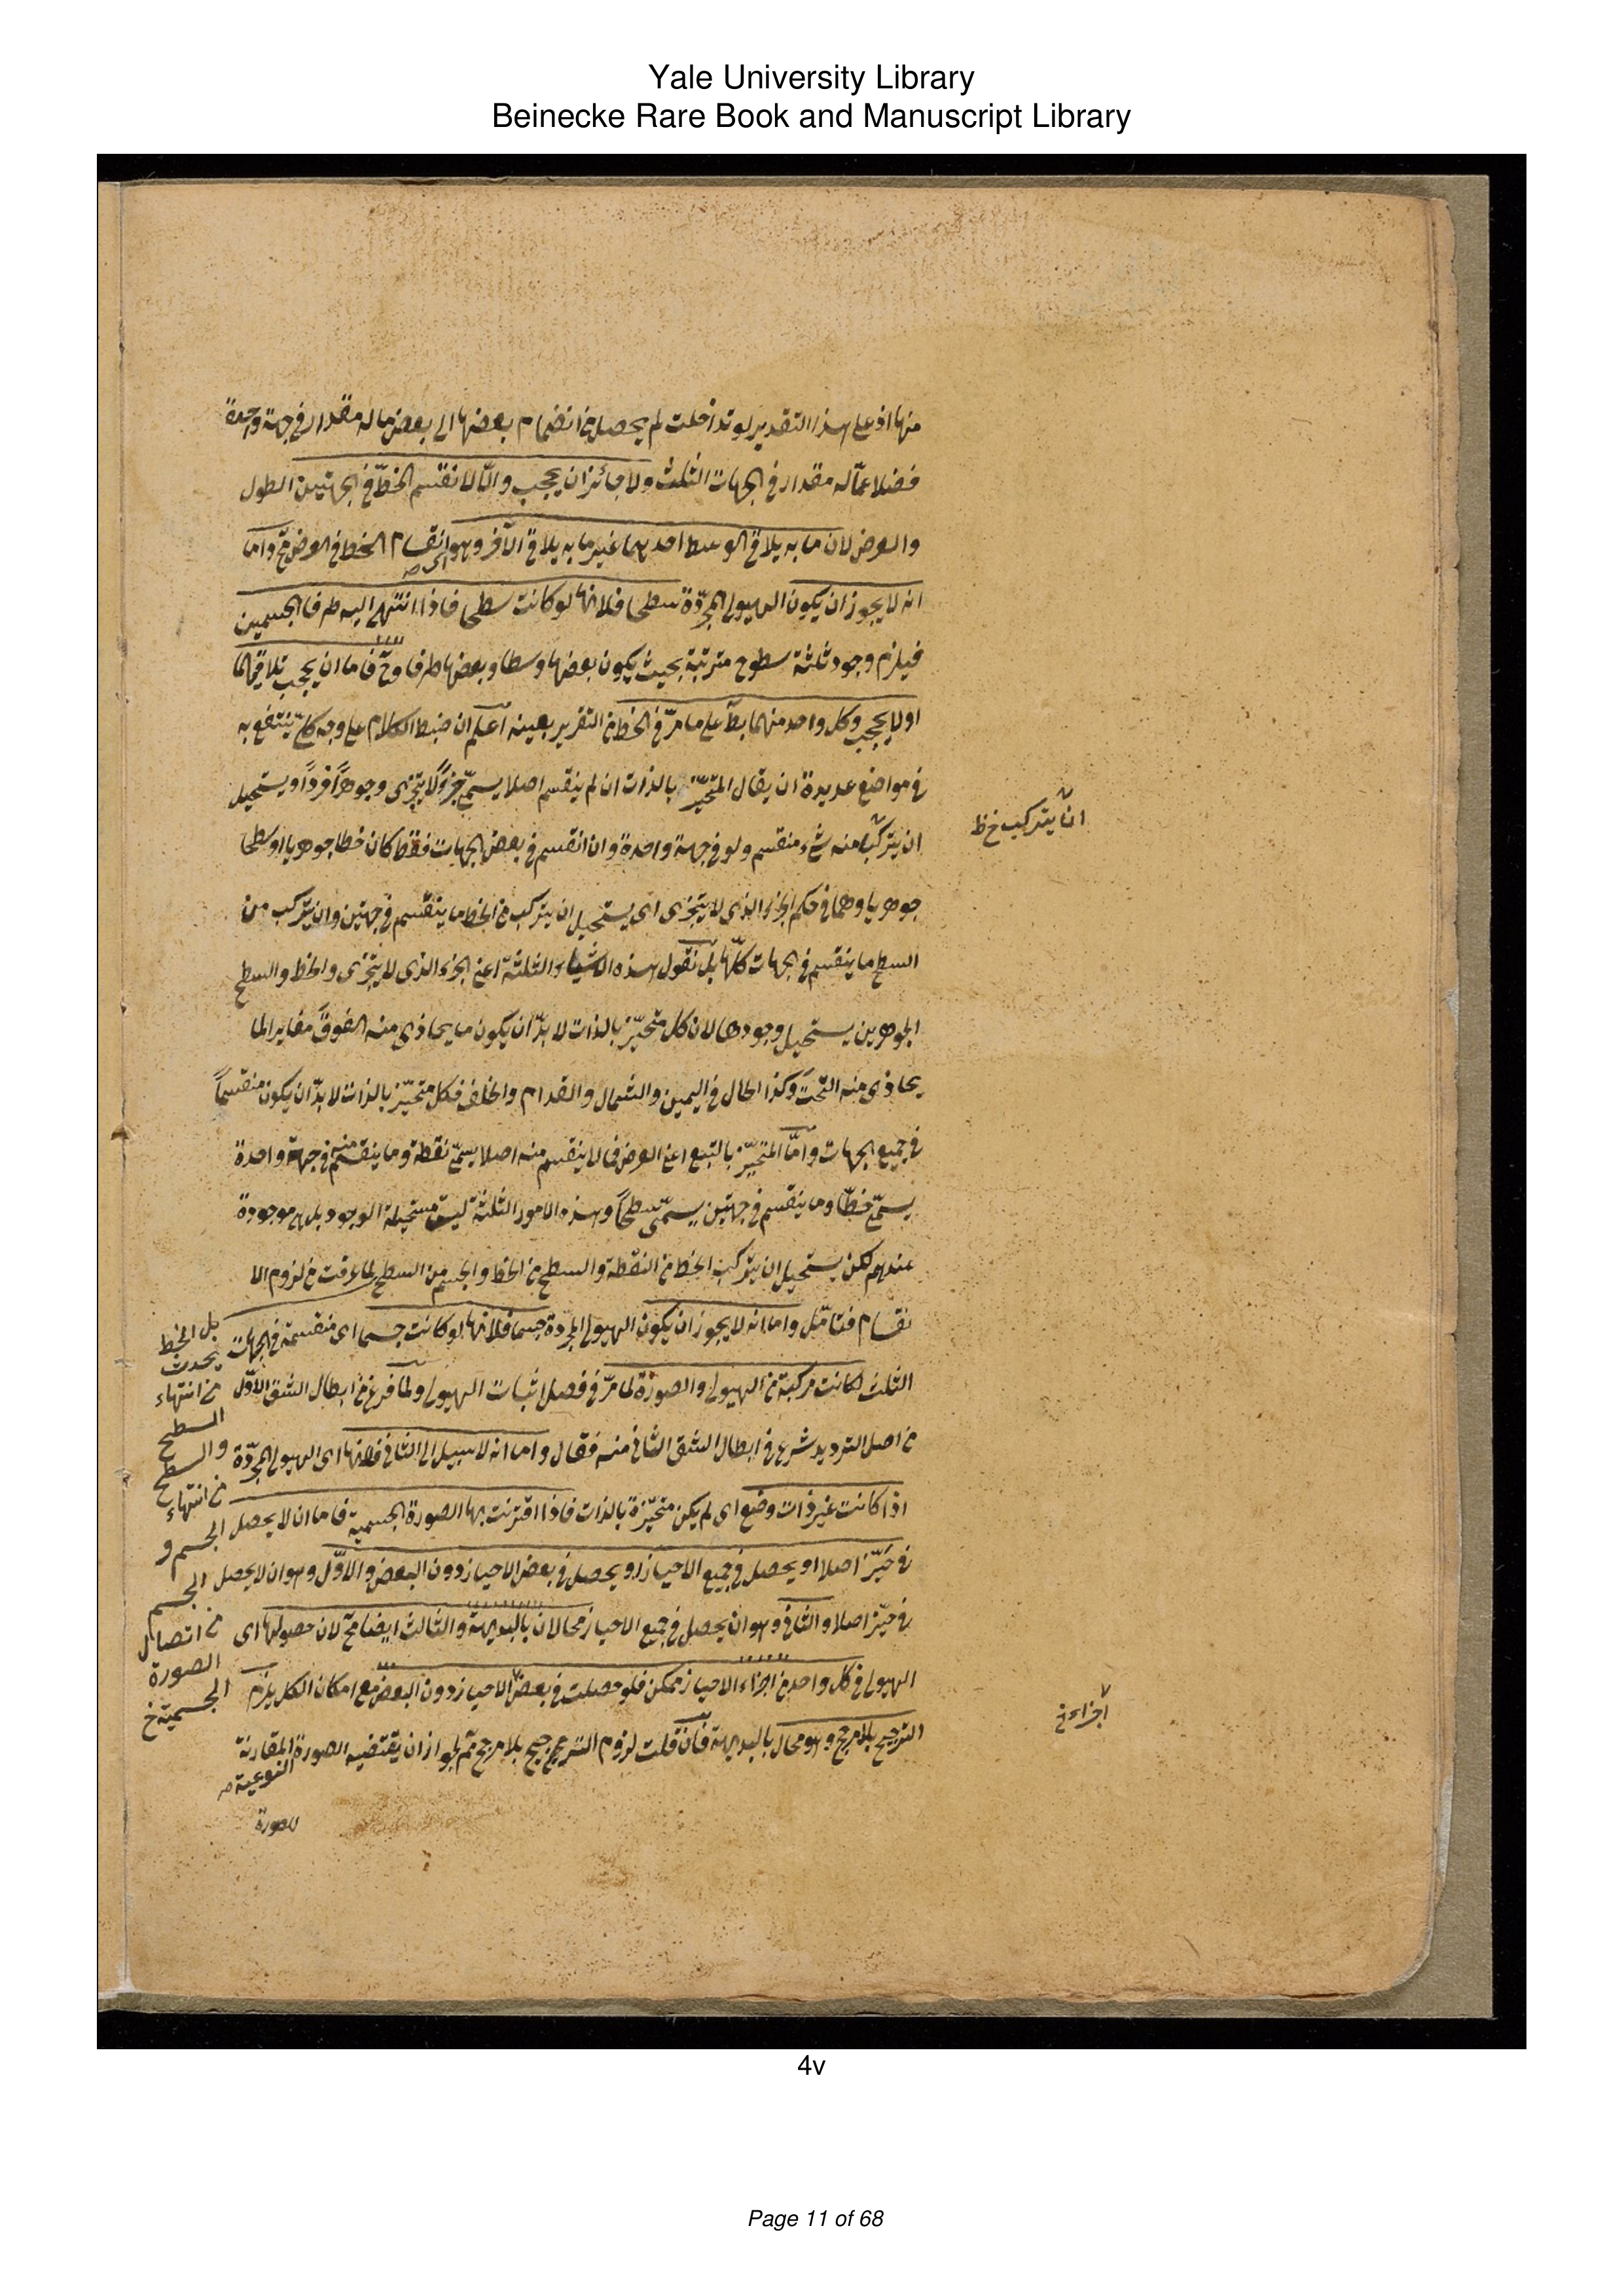 Yale University Library
Beinecke Rare Book and Manuscript Library
منها اذ على هذا التقدير لو تداخلت لم يحصل من انضمام بعضها الى بعض ما له مقدار في جهة واحدة
فضلا عمّا له مقدار في الجهات الثلث ولا جائز ان يحجب والّا لانقسم الخطّ في الجهتين الطول
والعرض لان ما به يلاقى الوسط احدهما غير ما به يلاقى الآخر وهو انقسام الخط في العرض مح واما
انه لا يجوز ان يكون الهيولى المجرّدة سطحا فلانها لو كانت سطحا فاذا انتهى اليه طرفا الجسمين
فيلزم وجود ثلثة سطوح مترتبة بحيث يكون بعضها وسطا وبعضها طرفا وح فاما ان يحجب تلاقيهما
اولا يحجب وكل واحد منهما بط على ما مرّ في الخط من التقرير بعينه اعلم ان ضبط الكلام على وجه كلّى ينتفع به
في مواضع عديدة ان يقال المتحيّز بالذات ان لم ينقسم اصلا يسمّى جزءً لا يتجزى وجوهراً فرداً ويستحيل
ان يتركب منه شيء منقسم ولو في جهة واحدة وان انقسم في بعض الجهات فقط كان خطا جوهريا او سطحا
ان يتركب خ ظ
جوهريا وهما في حكم الجزء الذى لا يتجزى اى يستحيل ان يتركب من الخط ما ينقسم في جهتين وان يتركب من
السطح ما ينقسم في الجهات كلّها بل نقول هذه الاشياء الثلثة اعنى الجزء الذى لا يتجزى والخط والسطح
الجوهرين يستحيل وجودها لان كل متحيّز بالذات لا بدّ ان يكون ما يحاذى منه الفوق مغايرا لما
يحاذى منه التحت وكذا الحال في اليمين والشمال والقدام والخلف فكل متحيّز بالذات لا بدّ ان يكون منقسماً
في جميع الجهات وامّا المتحيّز بالتبع اعنى العرض فما لا ينقسم منه اصلا يسمّى نقطة وما ينقسم منه في جهة واحدة
يسمّى خطّا وما ينقسم في جهتين يسمّى سطحاً وهذه الامور الثلثة ليست مستحيلة الوجود بل هى موجودة
عندهم لكن يستحيل ان يتركب الخط من النقطة والسطح من الخط والجسم من السطح لما عرفت من لزوم الا
نقسام فتامّل واما انه لا يجوز ان يكون الهيولى المجرّدة جسما فلانها لو كانت جسما اى منقسمة في الجهات
الثلث لكانت مركبة من الهيولى والصورة لما مرّ في فصل اثبات الهيولى ولما فرغ من ابطال الشق الاوّل
من اصل الترديد شرع في ابطال الشق الثاني منه فقال واما انه لا سبيل الى الثاني فلانها اى الهيولى المجرّدة
اذا كانت غير ذات وضع اى لم يكن متحيّزة بالذات فاذا اقترنت بها الصورة الجسمية فاما ان لا يحصل
في حيّز اصلا او يحصل في جميع الاحياز او يحصل في بعض الاحياز دون البعض والاوّل وهو ان لا يحصل
في حيّز اصلا والثاني وهو ان يحصل في جميع الاحياز محالان بالبديهة والثالث ايضا مح لان حصولها اى
الهيولى في كل واحد من اجزاء الاحياز ممكن فلو حصلت في بعض الاحياز دون البعض مع امكان الكل يلزم
الترجيح بلا مرجح وهو محال بالبديهة فان قلت لزوم الترجيح بلا مرجح ثم لجواز ان يقتضيه الصورة المقارنة
النوعية صح
للصورة
بل الخط
يحدث
من انتهاء
السطح
والسطح
من انتهاء
الجسم و
الجسم
من اتصال
الصورة
الجسمية خ
اجزاء خ
4v
Page 11 of 68